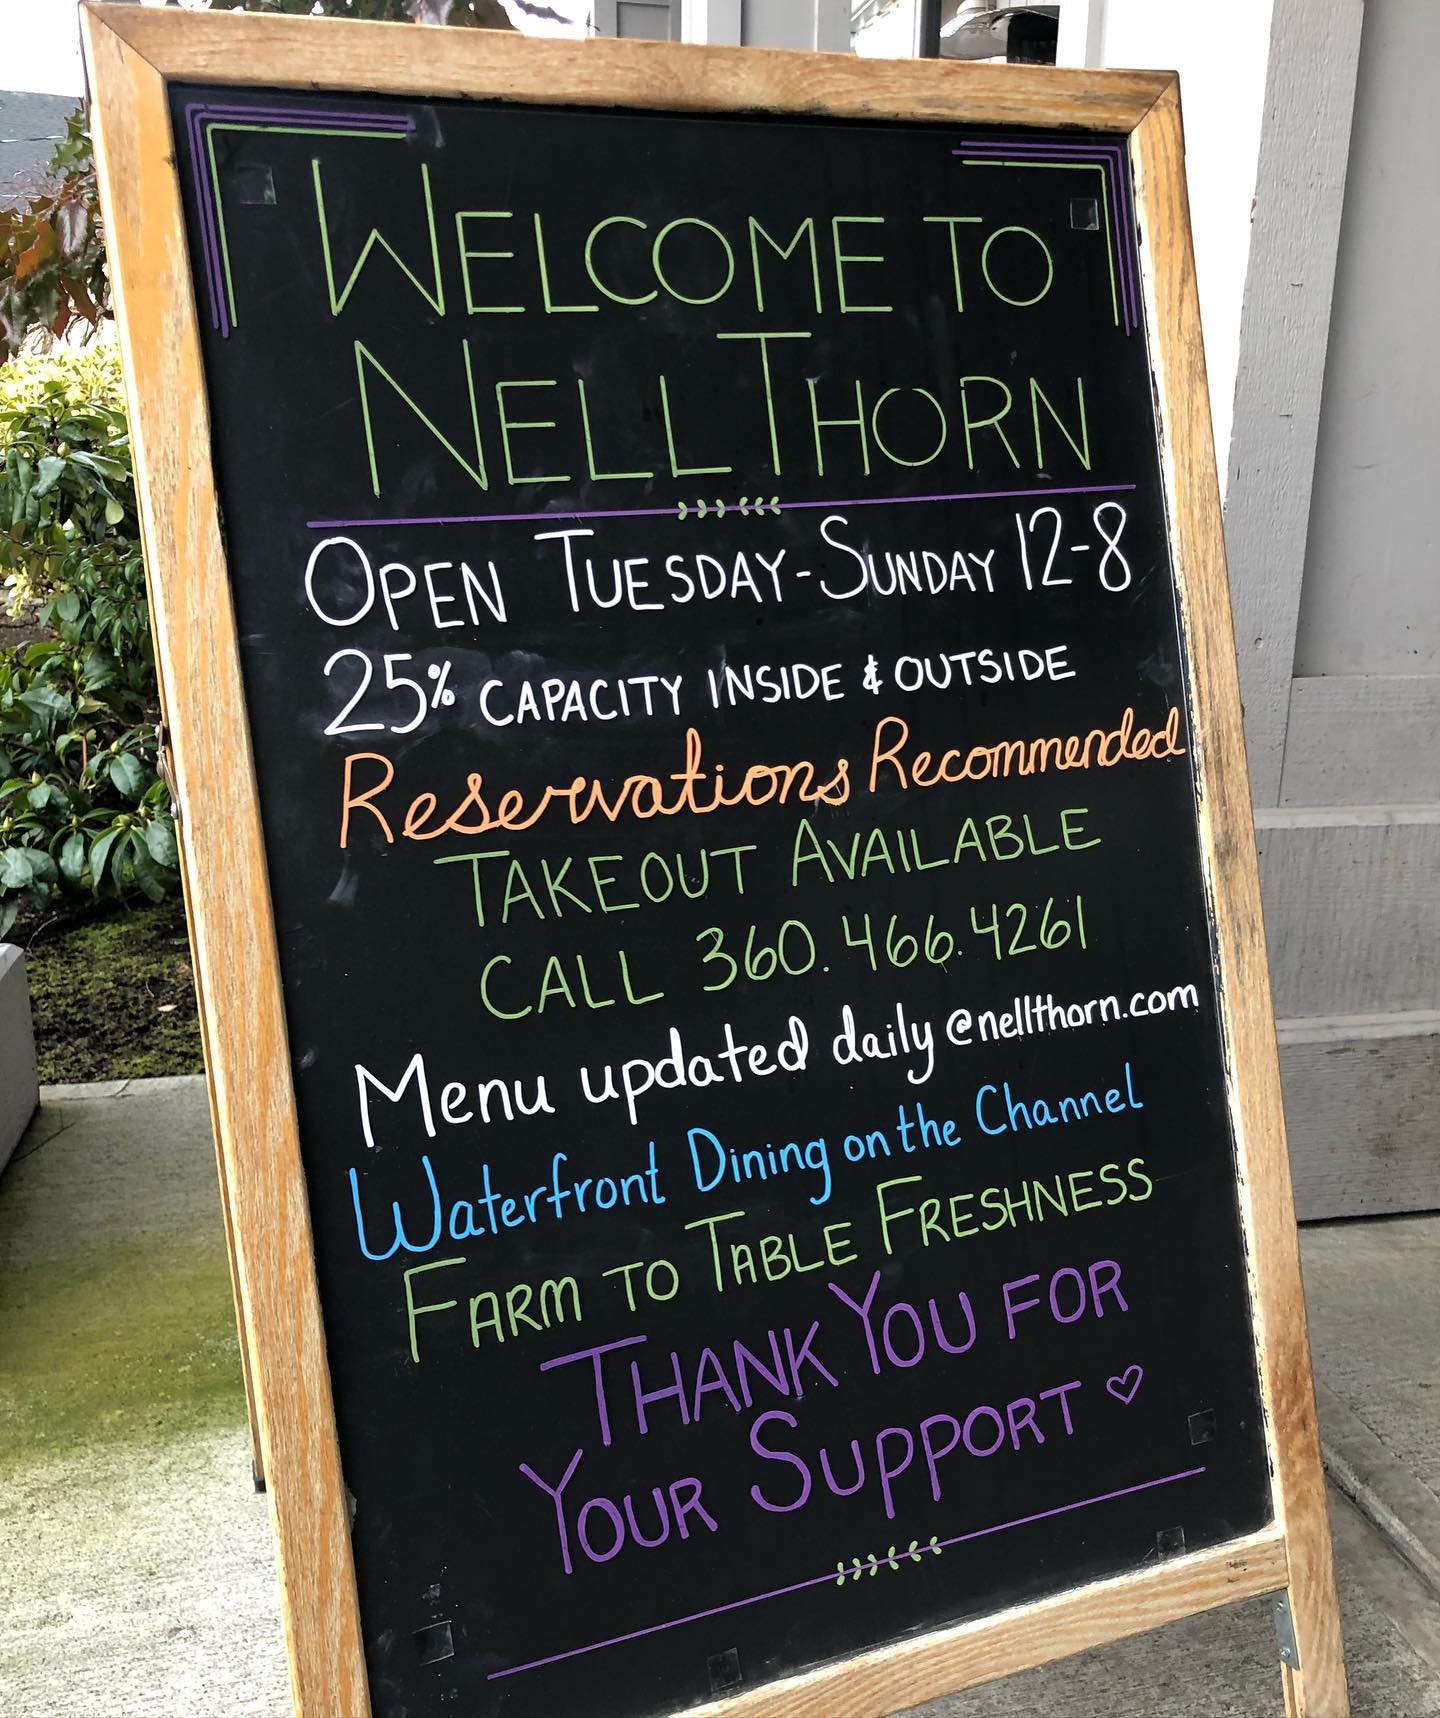 WELCOME TO
NELL THORN
OPEN TUESDAY-SUNDAY 12-8
25% CAPACITY INSIDE & OUTSIDE
Reservations Recommended
TAKEOUT AVAILABLE
CALL 360.466.4261
Menu updated daily @nellthorn.com
Waterfront Dining on the Channel
FARM TO TABLE FRESHNESS
THANK YOU FOR
YOUR SUPPORT ♡